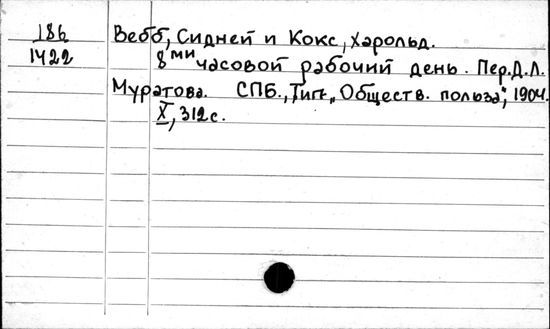 186 Вебб, Сидней и Кокс, Харольд.
1422 8ми часовой рабочий день. Пер. Д.Л.
Муратова. СПБ., Тип. „Обществ. польза“, 1904.
X, 312 с.